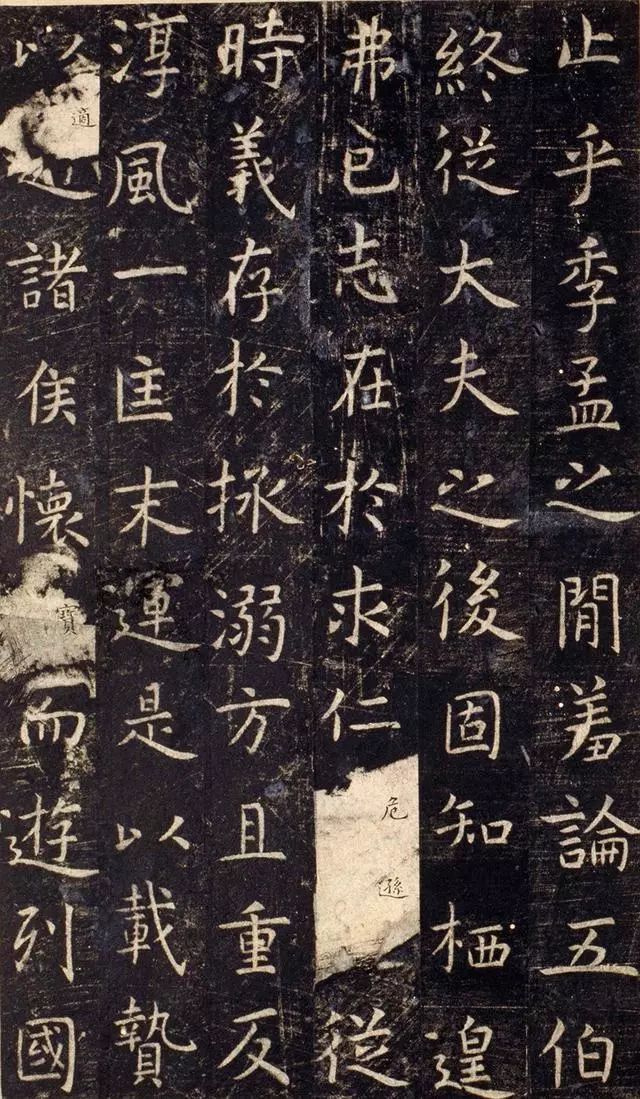 止乎季孟之閒羞論五伯
終從大夫之後固知栖遑
弗已志在於求仁危遜從
時義存於拯溺方且重反
淳風一匡末運是以載贄
以適諸侯懷寶而遊列國